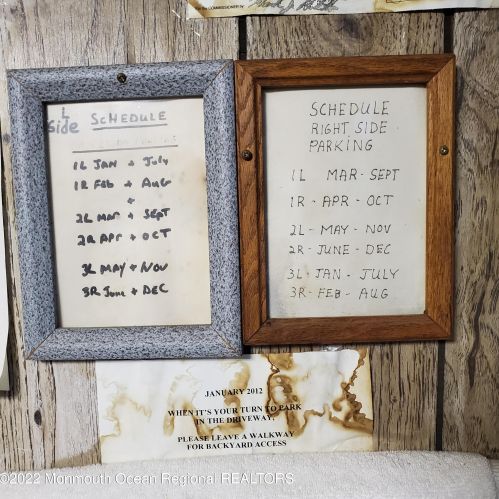 for the COMMISSIONER by
L
Side
SCHEDULE
1L JAN + July
1R Feb + Aug
+
2L Mar + Sept
2R Apr + OCT
3L MAY + Nov
3R June + DEC
SCHEDULE
RIGHT SIDE
PARKING
1L MAR-SEPT
1R - APR - OCT
2L - MAY - NOV
2R - JUNE - DEC
3L - JAN - JULY
3R - FEB - AUG
JANUARY 2012
WHEN IT'S YOUR TURN TO PARK
IN THE DRIVEWAY.
PLEASE LEAVE A WALKWAY
FOR BACKYARD ACCESS
©2022 Monmouth Ocean Regional REALTORS®